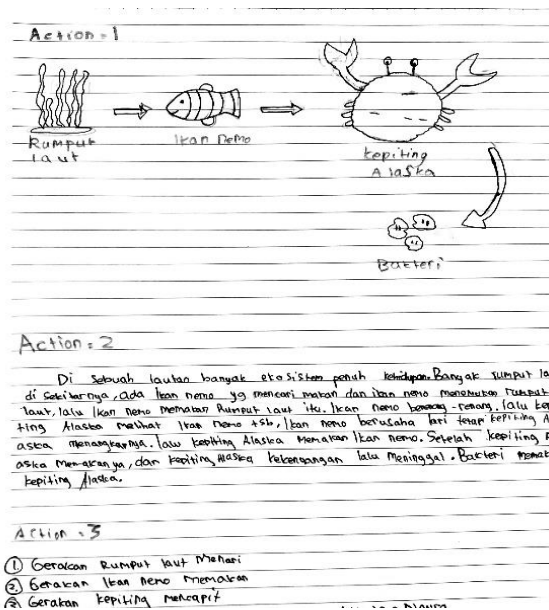 Action = 1
Rumput
laut
Ikan nemo
kepiting
Alaska
Bakteri
Action = 2
Di sebuah lautan banyak ekosistem penuh kehidupan. Banyak rumput la
di sekitarnya, ada ikan nemo yg mencari makan dan ikan nemo menemukan rumput
laut, lalu Ikan nemo memakan Rumput laut itu. Ikan nemo berenang-renang. lalu kep
ting Alaska melihat Ikan nemo tsb, Ikan nemo berusaha lari tetapi kepiting A
aska menangkapnya. lalu kepiting Alaska Memakan Ikan nemo. Setelah kepiting
aska Memakanya, dan kepiting Alaska kekenyangan lalu meninggal. Bakteri memak
kepiting Alaska.
Action = 3
① Gerakan Rumput laut Menari
②. Gerakan Ikan nemo memakan
③ Gerakan kepiting mencapit